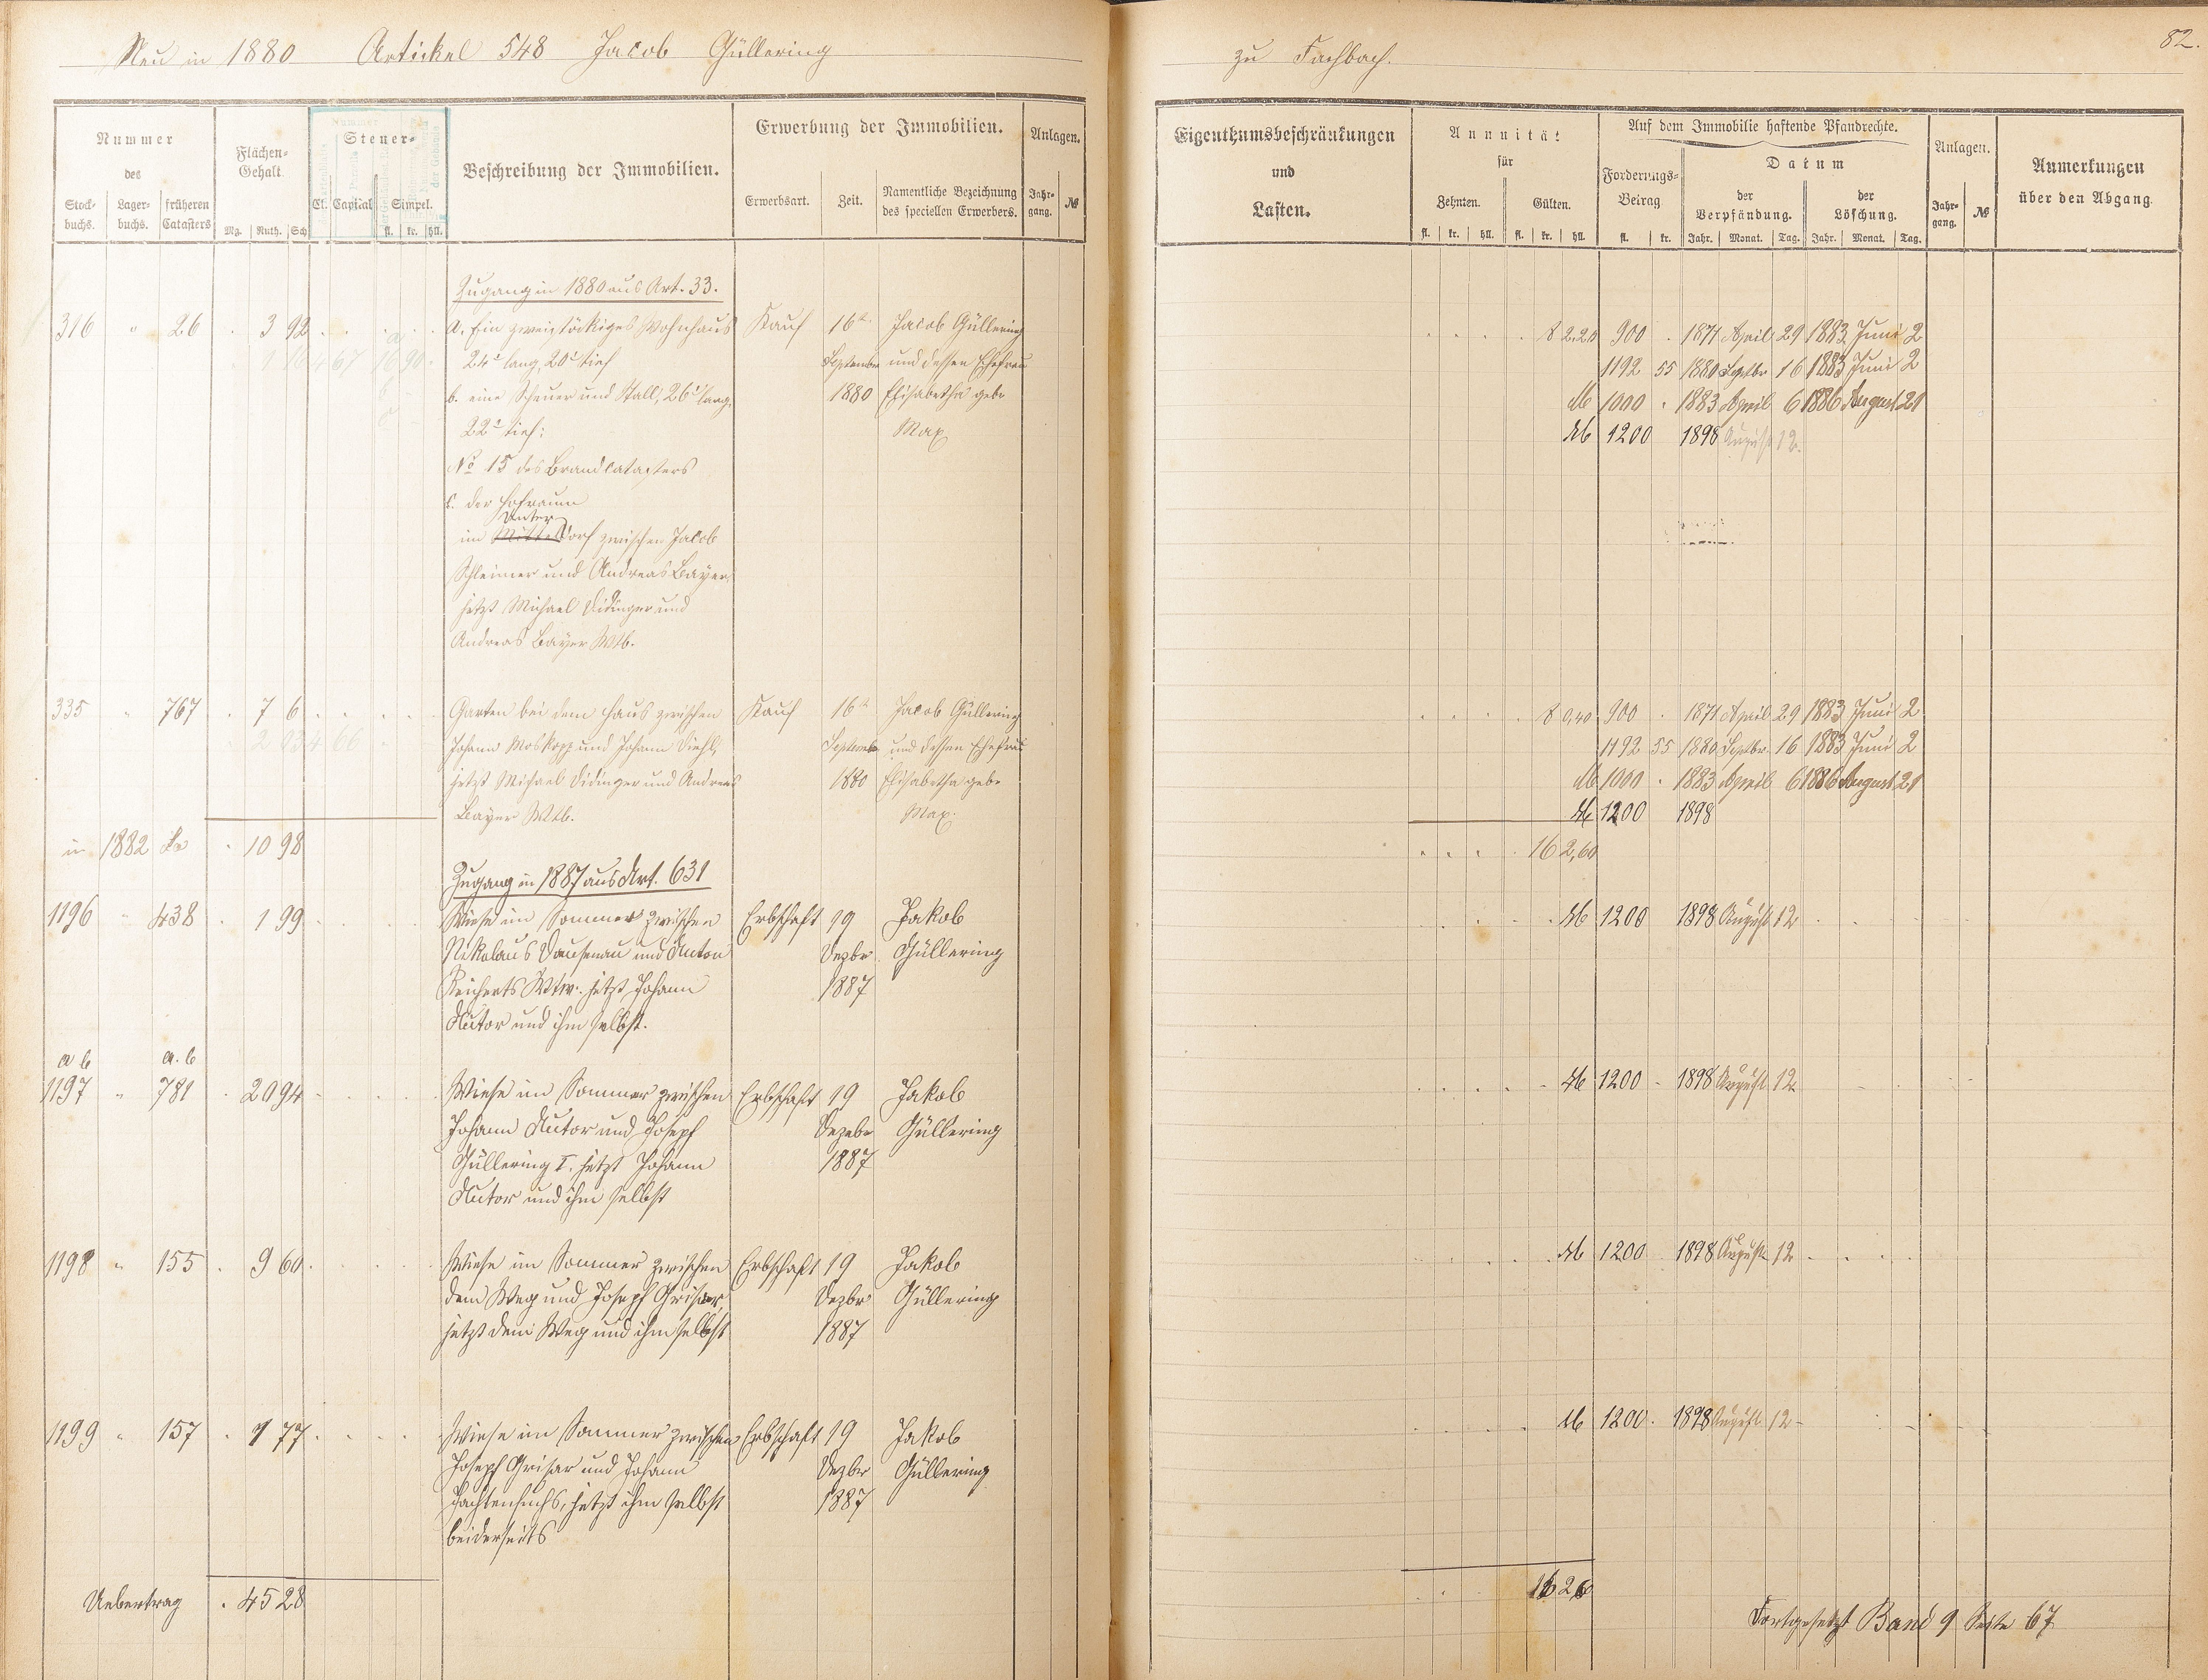 Neu in 1880 Artickel 548 Jacob Güllering
Nummer
des
Stock-
buchs.
Lager-
buchs.
früheren
Catasters
Flächen-
Gehalt.
Mg. Ruth. Sch
Steuer-
Cl. Capital Simpel.
fl. kr. hll.
Beschreibung der Immobilien.
Erwerbung der Immobilien.
Erwerbsart. Zeit.
Namentliche Bezeichnung
des speciellen Erwerbers.
Anlagen.
Jahr-
gang. №
Zugang in 1880 aus Art. 33.
316 " 26 . 3 92 a. Ein zweistöckiges Wohnhaus Kauf 16t Jacob Güllering
24' lang, 20' tief September und dessen Ehefrau
b. eine Scheuer und Stall, 26' lang, 1880 Elisabetha gebe
22' tief; Max
No 15 des Brandcatasters
c. der Hofraum
Unter
im Mitteldorf zwischen Jacob
Schleimer und Andreas Bayer
jetzt Michael Didinger und
Andreas Bayer Wtb.
335 " 767 . 7 6 Garten bei dem Haus zwischen Kauf 16t Jacob Güllering
Johann Moskopp und Johann Diehl, September und dessen Ehefrau
jetzt Michael Didinger und Andreas 1880 Elisabetha gebe
Bayer Wtb. Max.
in 1882 . 10 98
Zugang in 1887 aus Art. 631
1196 " 438 . 1 99 Wiese im Sommer zwischen Erbschaft 19 Jakob
Nikolaus Dausenau und Anton Dezbr Güllering
Reicherts Wtw. jetzt Johann 1887
Autor und ihm selbst.
a b a. b
1197 " 781 . 20 94 Wiese im Sommer zwischen Erbschaft 19 Jakob
Johann Autor und Joseph Dezebr Güllering
Güllering I. jetzt Johann 1887
Autor und ihm selbst
1198 " 155 . 9 60 Wiese im Sommer zwischen Erbschaft 19 Jakob
dem Weg und Joseph Grisar, Dezbr Güllering
jetzt dem Weg und ihm selbst 1887
1199 " 157 . 1 77 Wiese im Sommer zwischen Erbschaft 19 Jakob
Joseph Grisar und Johann Dezbr Güllering
jetzt ihm selbst 1887
beiderseits
Uebertrag . 45 28
zu Fachbach. 82.
Eigenthumsbeschränkungen
und
Lasten.
Annuität
für
Zehnten. Gülten.
fl. kr. hll. fl. kr. hll.
Auf dem Immobilie haftende Pfandrechte.
Forderungs-
Betrag
fl. kr.
Datum
der
Verpfändung.
der
Löschung.
Jahr. Monat. Tag. Jahr. Monat. Tag.
Anlagen.
Jahr-
gang. №
Anmerkungen
über den Abgang.
8 2.20 900 . 1871 April 29 1883 Juni 2
1192 55 1880 Septbr 16 1883 Juni 2
M 1000 . 1883 April 6 1886 August 21
M 1200 1898 August 12.
8 0,40 900 . 1871 April 29 1883 Juni 2
1192 55 1880 Septbr. 16 1883 Juni 2
M 1000 . 1883 April 6 1886 August 21
M 1200 1898
16 2,60
M 1200 1898 August 12
M 1200 1898 August 12
M 1200 1898 August 12
M 1200 . 1898 August 12
16 2,6
Fortgesetzt Band 9 Seite 67